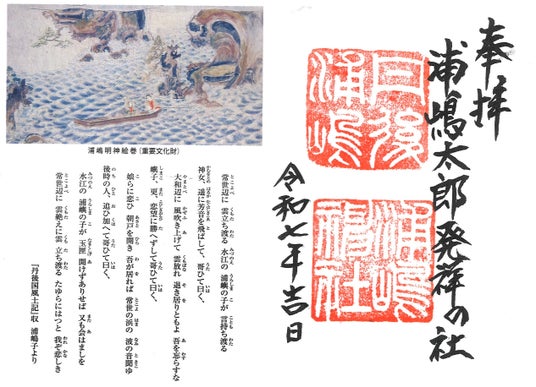 奉拝
浦嶋太郎発祥の社
丹後
浦嶋
浦嶋
神社
令和七年吉日
浦嶋明神絵巻（重要文化財）
常世辺に 雲立ち渡る 水江の 浦嶼の子が 言持ち渡る
神女、遥に芳音を飛ばして、哥ひて曰く、
大和辺に 風吹き上げて 雲放れ 退き居りともよ 吾を忘らすな
嶼子、更、恋望に勝へずして哥ひて曰く、
娘らに恋ひ 朝戸を開き 吾が居れば 常世の浜の 波の音聞ゆ
後時の人、追ひ加へて哥ひて曰く、
水江の 浦嶼の子が 玉匣 開けずありせば 又も会はましを
常世辺に 雲絶えに雲 立ち渡る たゆらにはつと 我ぞ悲しき
『丹後国風土記』収 浦嶋子より